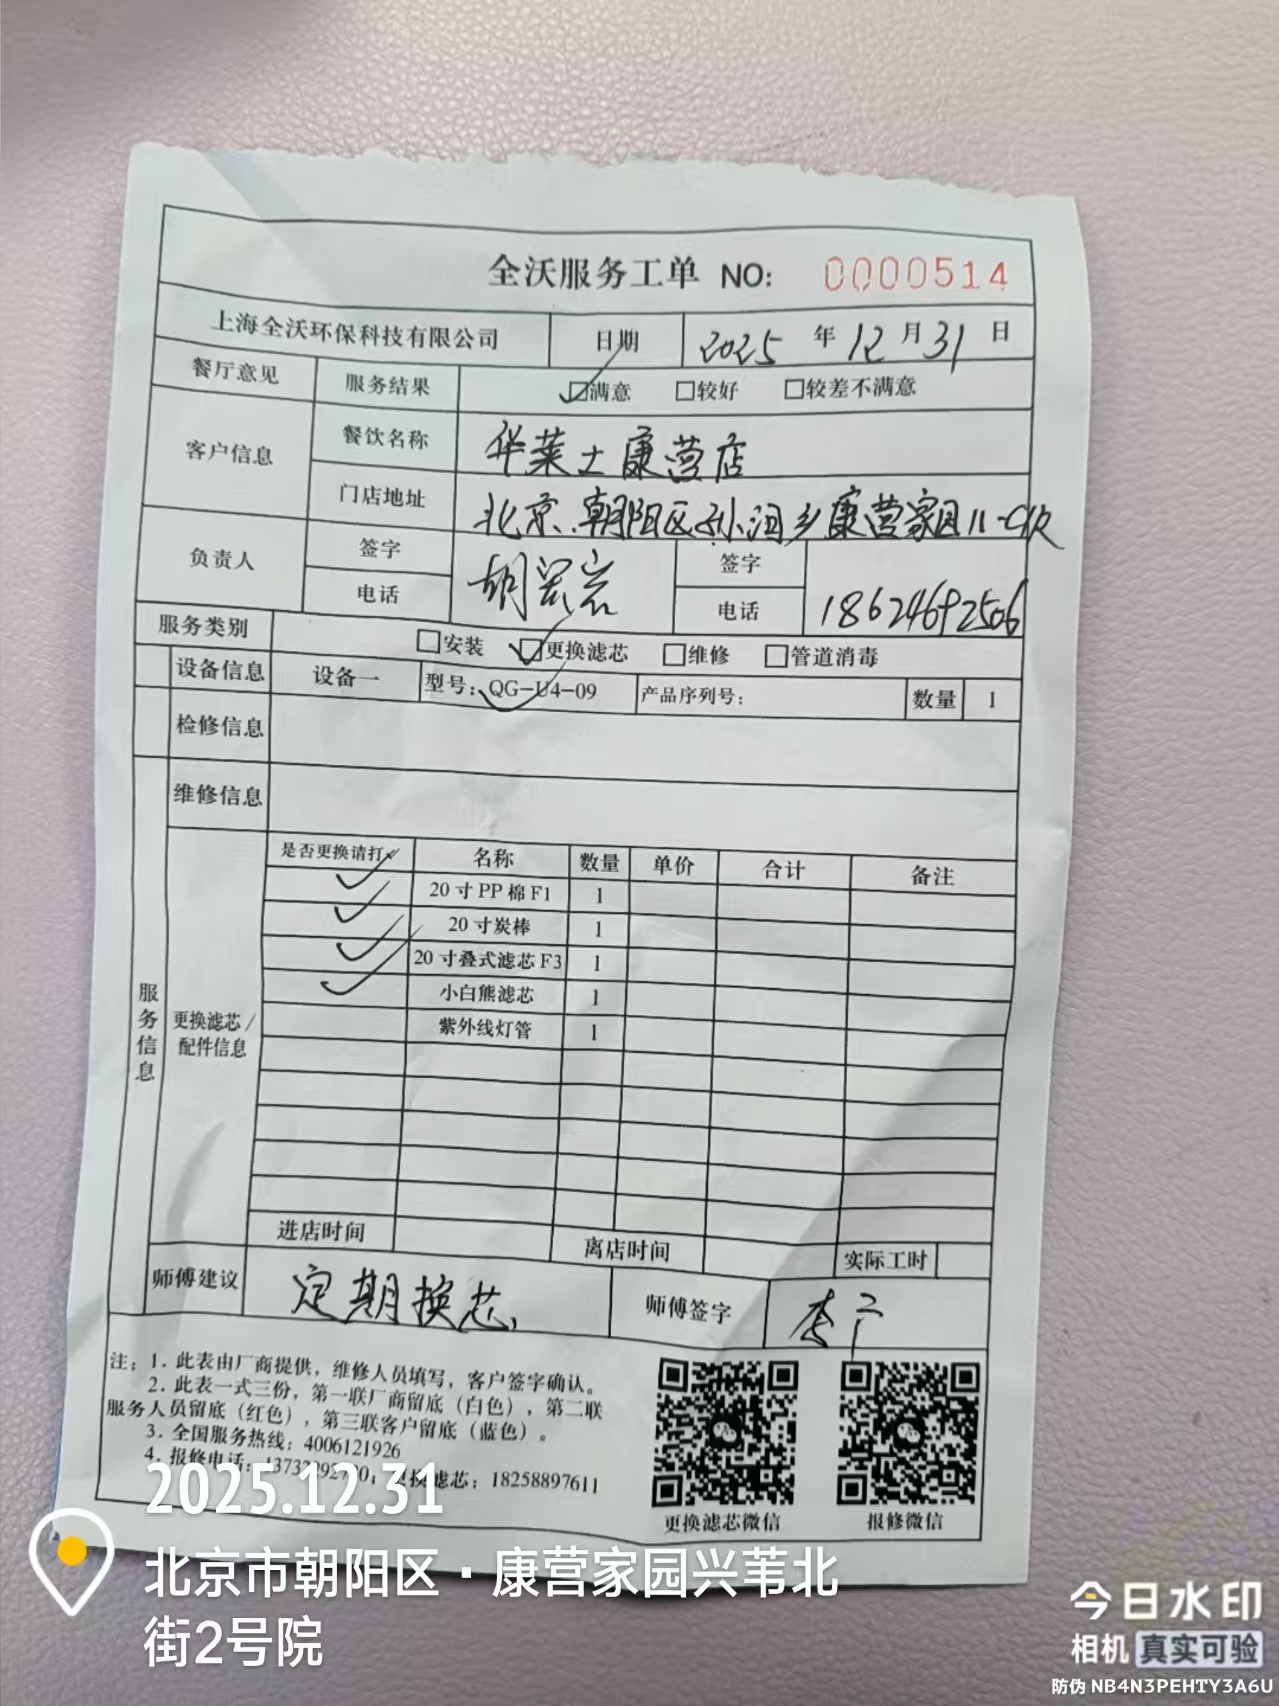 全沃服务工单 NO: 0000514
上海全沃环保科技有限公司 日期 2025 年 12 月 31 日
餐厅意见 服务结果 ☑满意 □较好 □较差不满意
客户信息 餐饮名称 华莱士康营店
门店地址 北京朝阳区孙河乡康营家园
负责人 签字 胡 岩 签字
电话 电话 18624692506
服务类别 □安装 ☑更换滤芯 □维修 □管道消毒
设备信息 设备一 型号：QG-U4-09 产品序列号： 数量 1
检修信息
维修信息
是否更换请打✓ 名称 数量 单价 合计 备注
✓ 20寸PP棉F1 1
✓ 20寸炭棒 1
✓ 20寸叠式滤芯F3 1
✓ 小白熊滤芯 1
紫外线灯管 1
服务信息
更换滤芯/
配件信息
进店时间 离店时间 实际工时
师傅建议 定期换芯 师傅签字 李
注：1．此表由厂商提供，维修人员填写，客户签字确认。
2．此表一式三份，第一联厂商留底（白色），第二联
服务人员留底（红色），第三联客户留底（蓝色）。
3．全国服务热线：4006121926
4．报修电话： 换滤芯：18258897611
更换滤芯微信 报修微信
2025.12.31
北京市朝阳区·康营家园兴苇北
街2号院
今日水印
相机 真实可验
防伪 NB4N3PEHTY3A6U